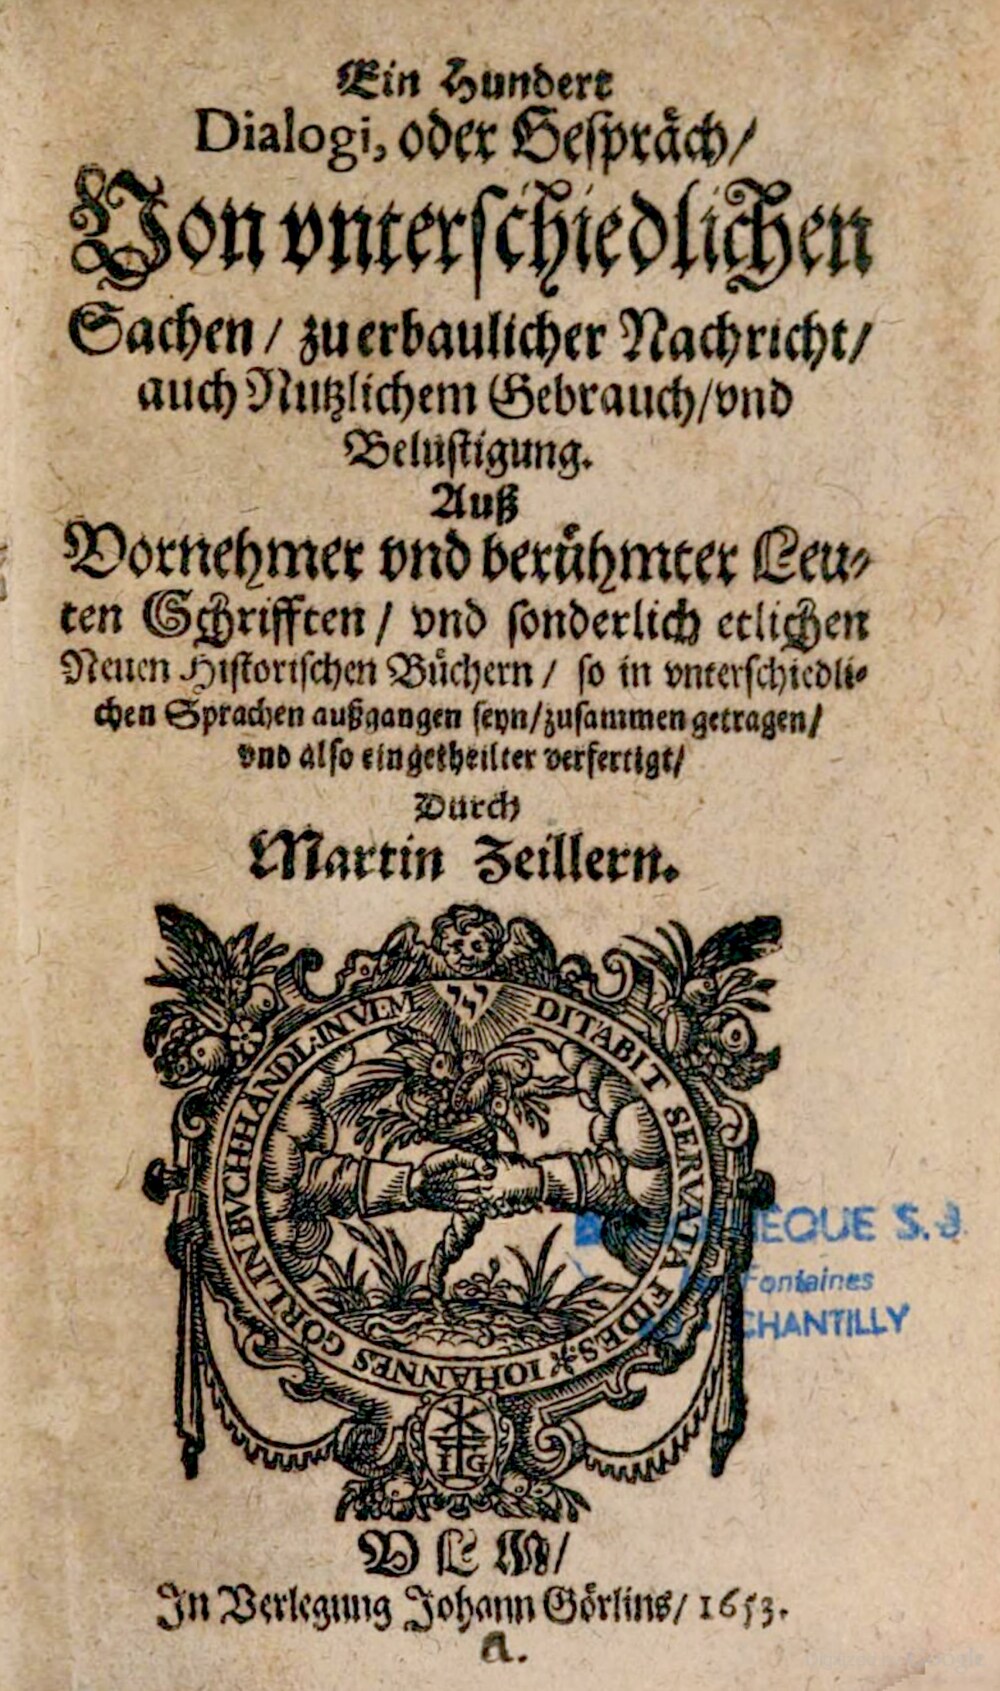 Ein Hundert
Dialogi, oder Gespräch/
Von vnterschiedlichen
Sachen / zu erbaulicher Nachricht/
auch Nutzlichem Gebrauch/vnd
Belustigung.
Auß
Vornehmer vnd berühmter Leu-
ten Schrifften / vnd sonderlich etlichen
Neuen Historischen Büchern / so in vnterschiedli-
chen Sprachen außgangen seyn/zusammen getragen/
vnd also eingetheilter verfertigt/
Durch
Martin Zeillern.
DITABIT SERVATA FIDES.* IOHANNES GÖRLIN BVCHHÄNDL. IN VLM
IG
EQUE S. J
Fontaines
CHANTILLY
V L M/
In Verlegung Johann Görlins/ 1653.
a.